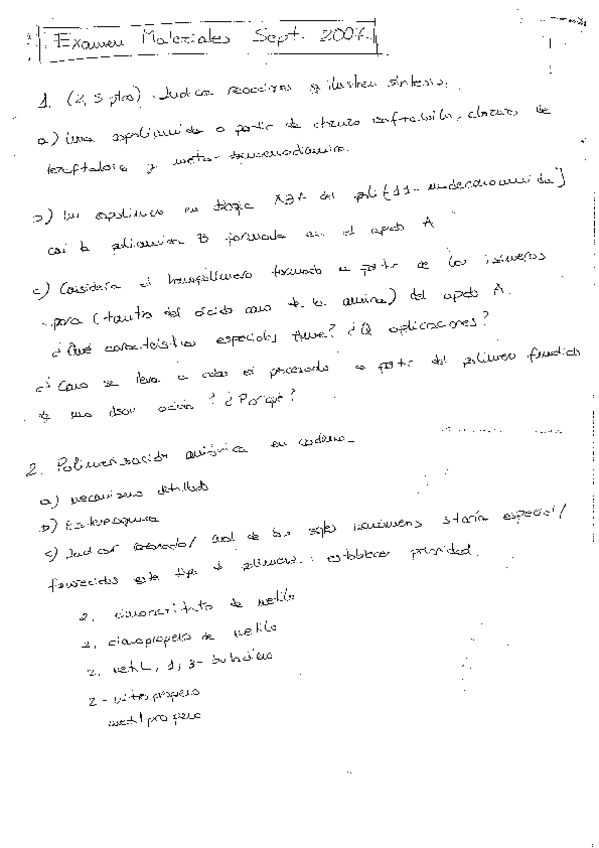 Examen Materiales Sept. 2007.
1. (2,5 ptos) Indicar reacciones que ilustren síntesis.
a) Una copoliamida a partir de cloruro de
y meta-
b) Un copolímero en bloque ABA del poli [11-undecanoamida]
con la poliamida B formada en el apdo A
c) Considera el homopolímero formado a partir de los isómeros
para (tanto del ácido como de la amina) del apdo A.
¿Qué características especiales tiene? ¿Q aplicaciones?
¿Cómo se lleva a cabo el procesado a partir del polímero fundido
o de una disolución? ¿Por qué?
2. Polimerización aniónica en cadena.
a) mecanismo detallado
b) Estereoquímica
c) Indicar cual de los monómeros estaría especial/
favorecidos este tipo de polímeros: establecer prioridad.
2. cianoacrilato de metilo
2. cianopropeno de metilo
2. metil, 1,3-butadieno
2-nitropropeno
metilpropeno